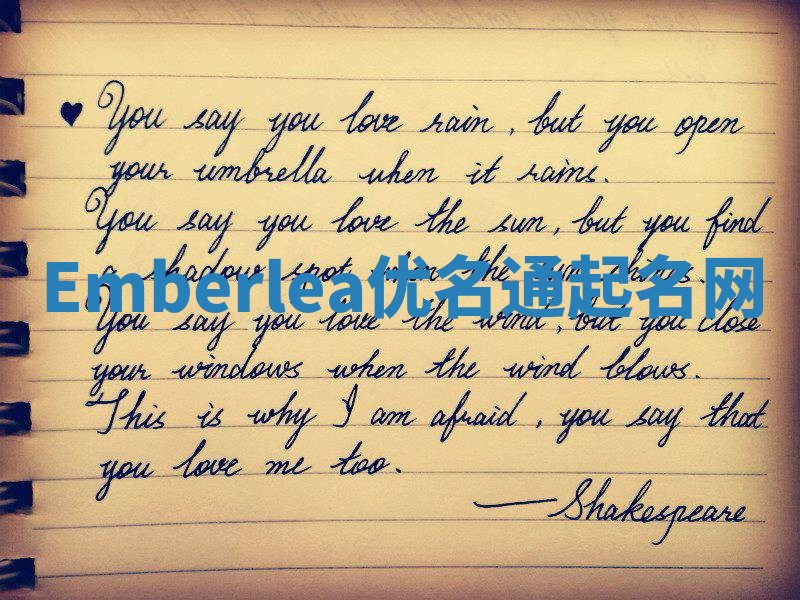 ♥ You say you love rain, but you open
your umbrella when it rains.
You say you love the sun, but you find
a shadow spot when the sun shines.
Emberlea优名通起名网
You say you love the wind, but you close
your windows when the wind blows.
This is why I am afraid, you say that
you love me too.
—Shakespeare